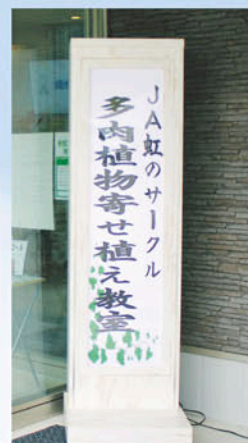 JA虹のサークル
多肉植物寄せ植え教室